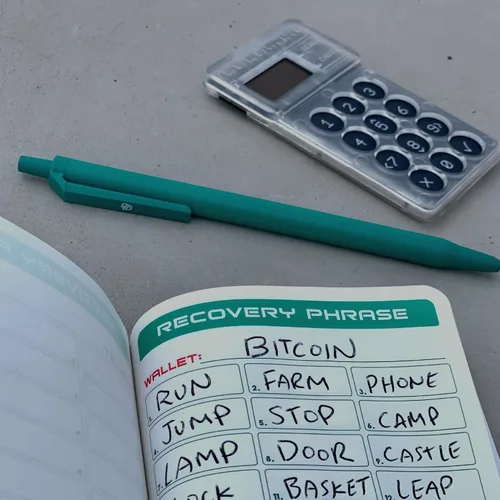 1 2 3
4 5 6
7 8 9
X 0 ✓
RECOVERY PHRASE
WALLET: BITCOIN
1. RUN 2. FARM 3. PHONE
JUMP 5. STOP 6. CAMP
7. LAMP 8. DOOR 9. CASTLE
11. BASKET 12. LEAP